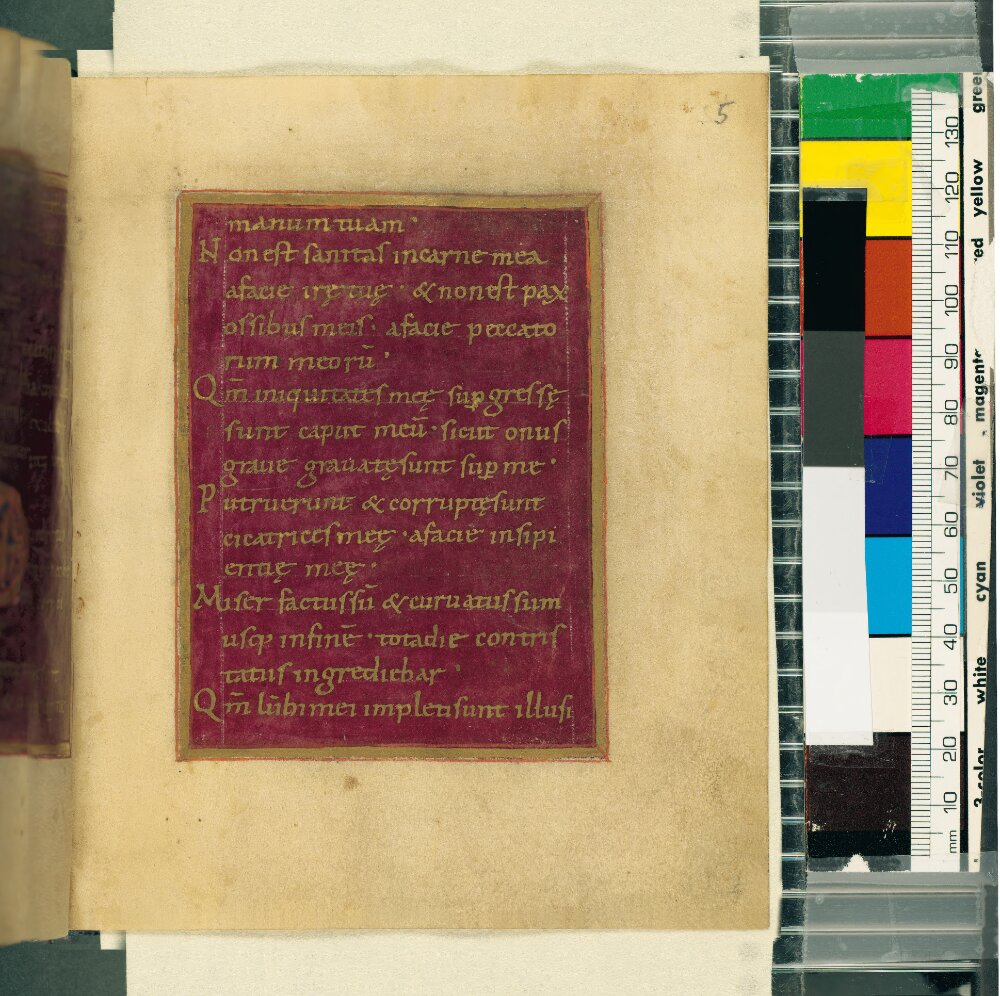 5
manum tuam·
Non est sanitas in carne mea
afacie irę tuę· & non est pax
ossibus meis· afacie peccato
rum meorū·
Qm̄ iniquitates meę sup̱gressę
sunt caput meū· sicut onus
graue grauatę sunt sup̱ me·
Putruerunt & corruptę sunt
cicatrices meę· afacie insipi
entię meę·
Miser factus sū & curuatus sum
usq; in finē· tota die contris
tatus ingrediebar·
Qm̄ lūbi mei impleti sunt illusi
mm 10 20 30 40 50 60 70 80 90 100 110 120 130
3-color white cyan violet magenta red yellow green